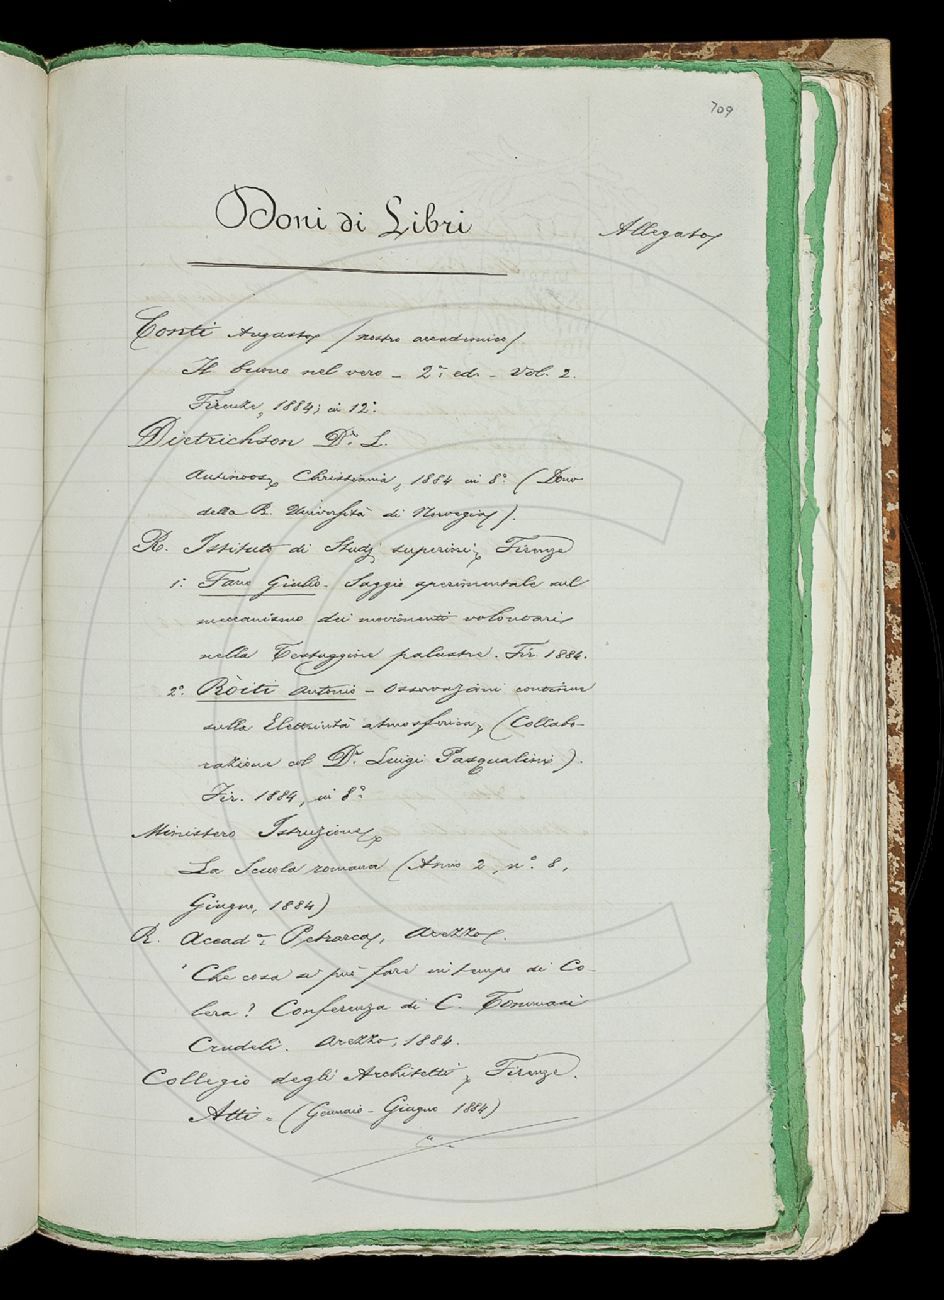 709
Doni di Libri
Allegato
Conti Augusto / nostro accademico /
Il buono nel vero – 2ª ed. – Vol. 2.
Firenze, 1884; in 12°.
Dietrichson Dr. L.
Antinoos, Christiania, 1884 in 8° (Dono
della R. Università di Norvegia).
R. Istituto di Studj superiori, Firenze
1°. Fano Giulio. Saggio sperimentale sul
meccanismo dei movimenti volontari
nella Testuggine palustre. Fir. 1884.
2°. Ròiti Antonio – Osservazioni continue
sulla Elettricità atmosferica, (Collabo-
razione col Dr. Luigi Pasqualini).
Fir. 1884, in 8°.
Ministero Istruzione,
La Scuola romana (Anno 2, n° 8,
Giugno, 1884)
R. Accadª. Petrarca, Arezzo.
"Che cosa si può fare in tempo di Co-
lera? Conferenza di C. Tommasi
Crudeli. Arezzo, 1884.
Collegio degli Architetti, Firenze.
Atti. (Gennaio – Giugno 1884)